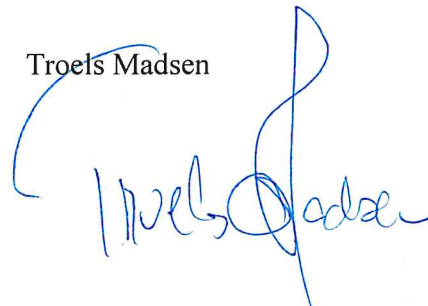 Troels Madsen
Troels Madsen